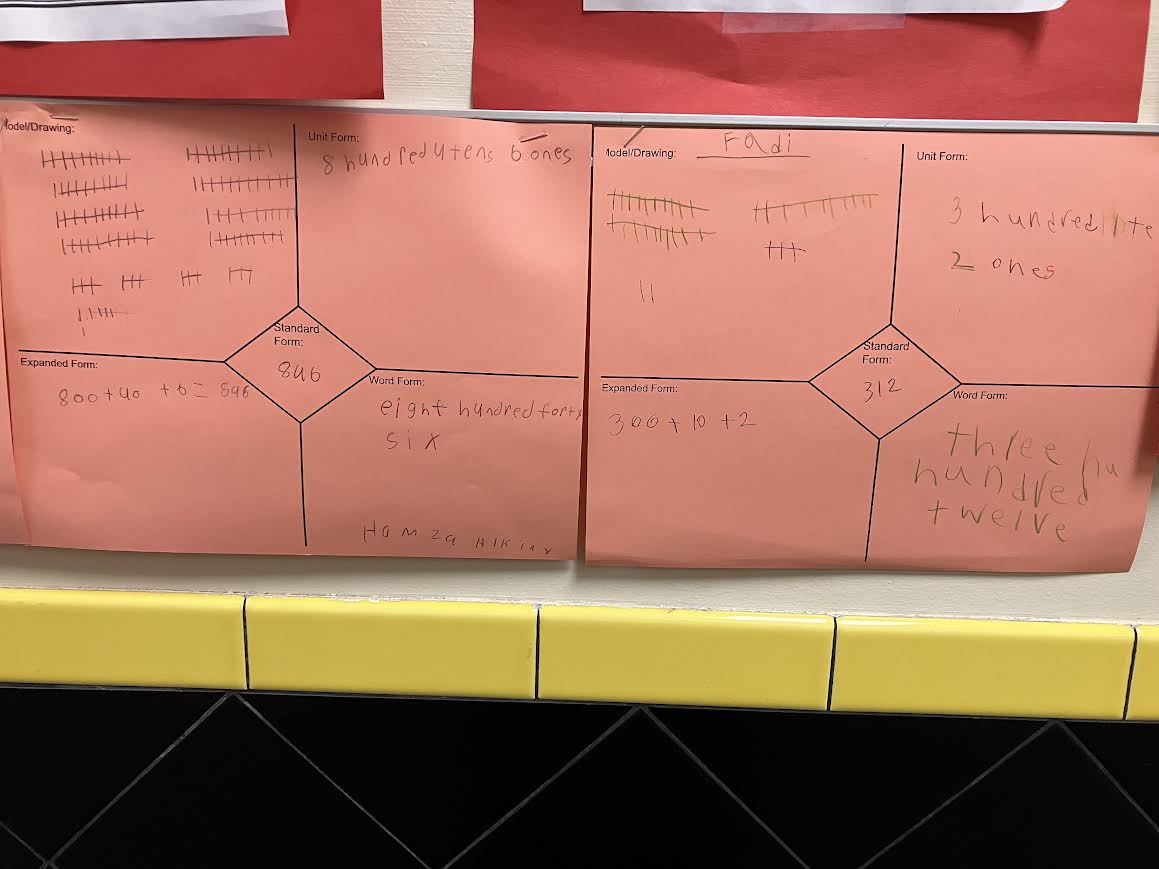 Model/Drawing:
Unit Form:
8 hundred 4 tens 6 ones
Standard
Form:
846
Expanded Form:
800+40 +6= 846
Word Form:
eight hundred forty
six
Hamza
Model/Drawing:
Fadi
Unit Form:
3 hundred 1 te
2 ones
Standard
Form:
312
Expanded Form:
300 + 10 +2
Word Form:
three hu
hundred
twelve